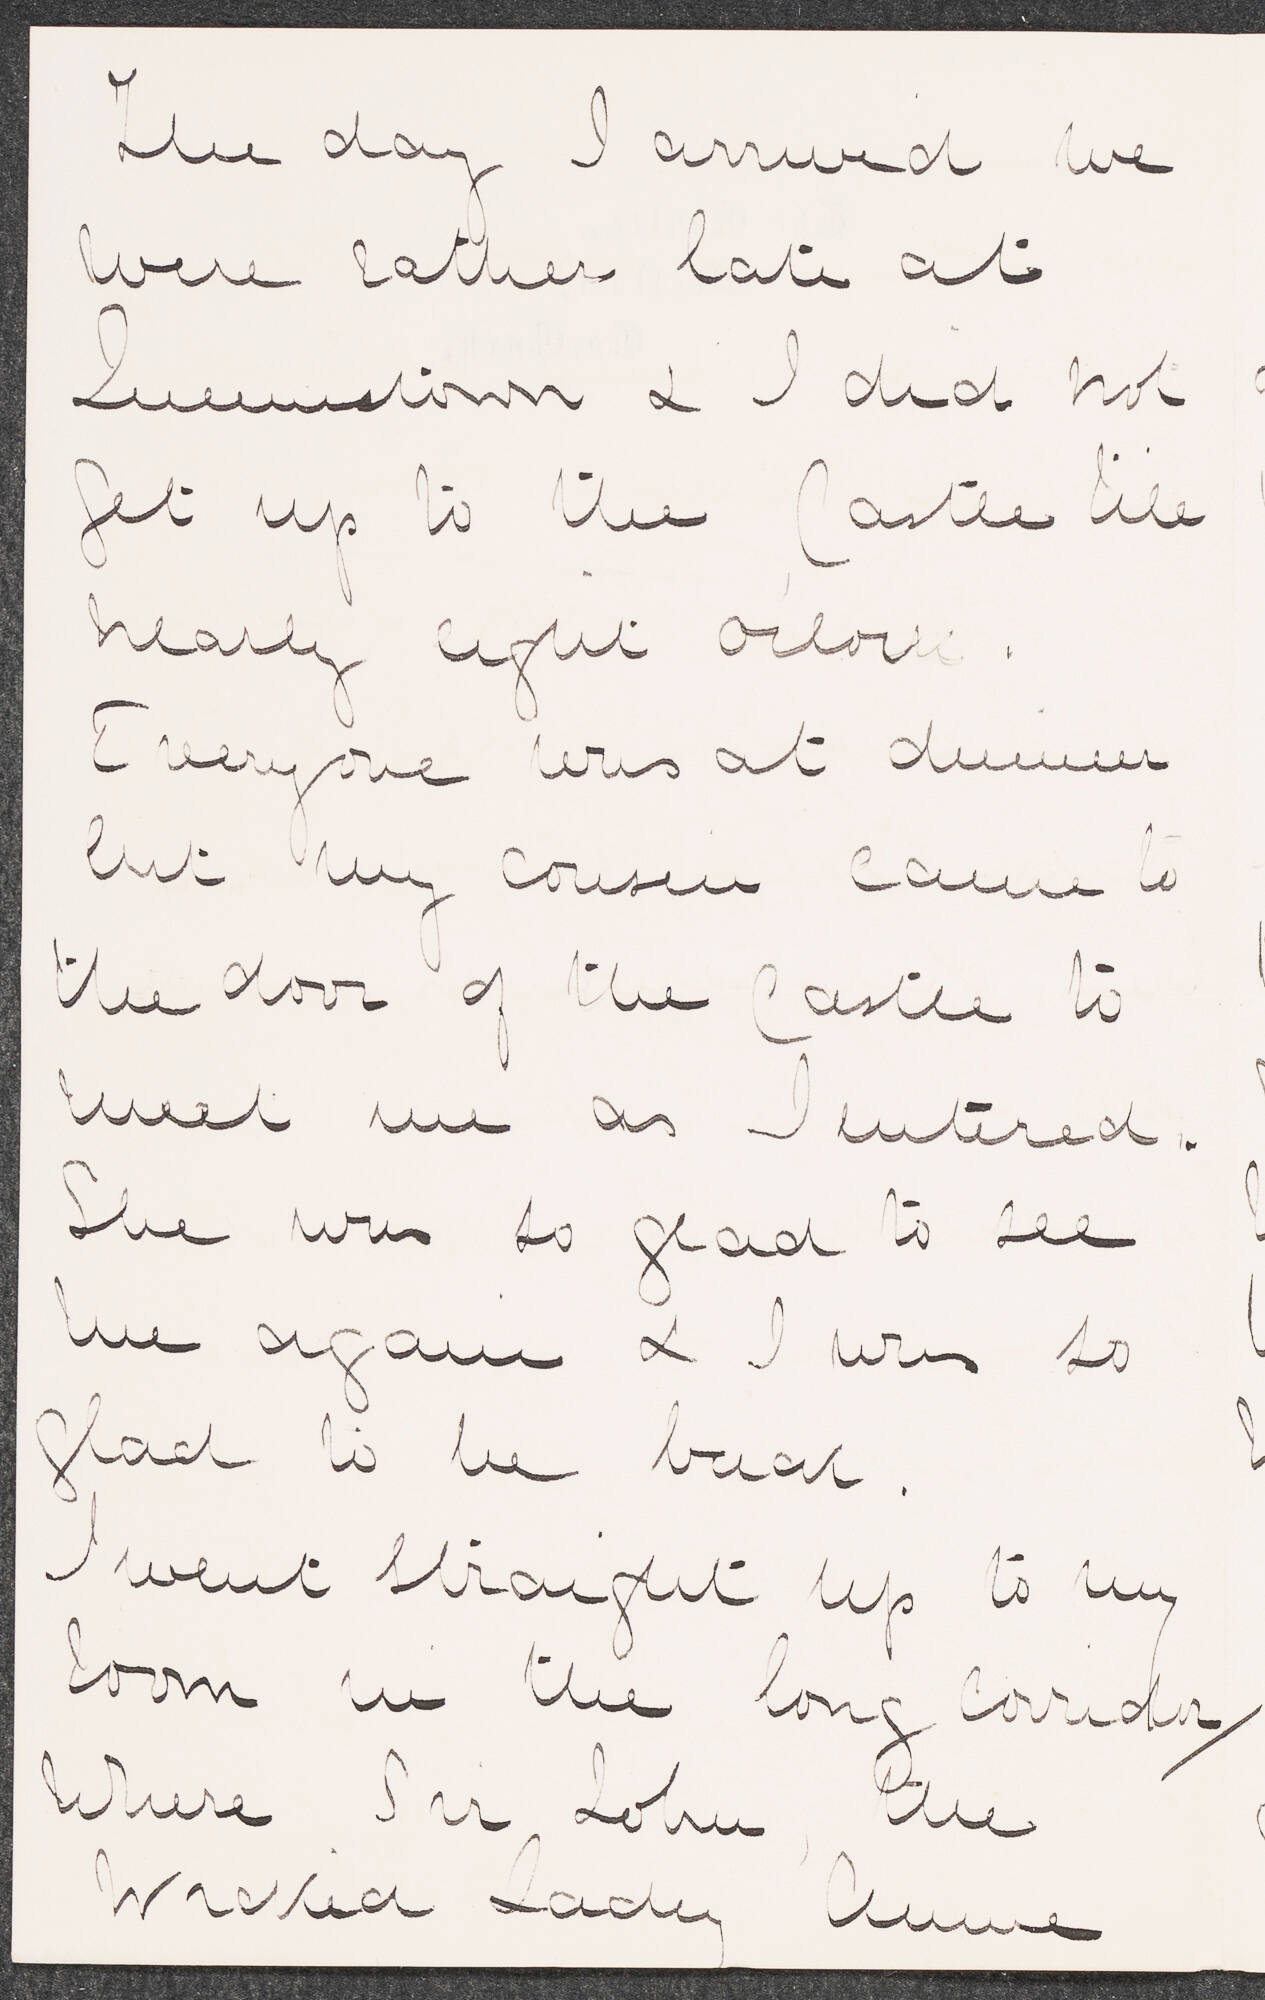 The day I arrived we
were rather late at
Queenstown & I did not
get up to the Castle till
nearly eight oclock.
Everyone was at dinner
but my cousin came to
the door of the Castle to
meet me as I entered.
She was so glad to see
me again & I was so
glad to be back.
I went straight up to my
room in the long corridor
where Sir John, the
wicked Lady Anne